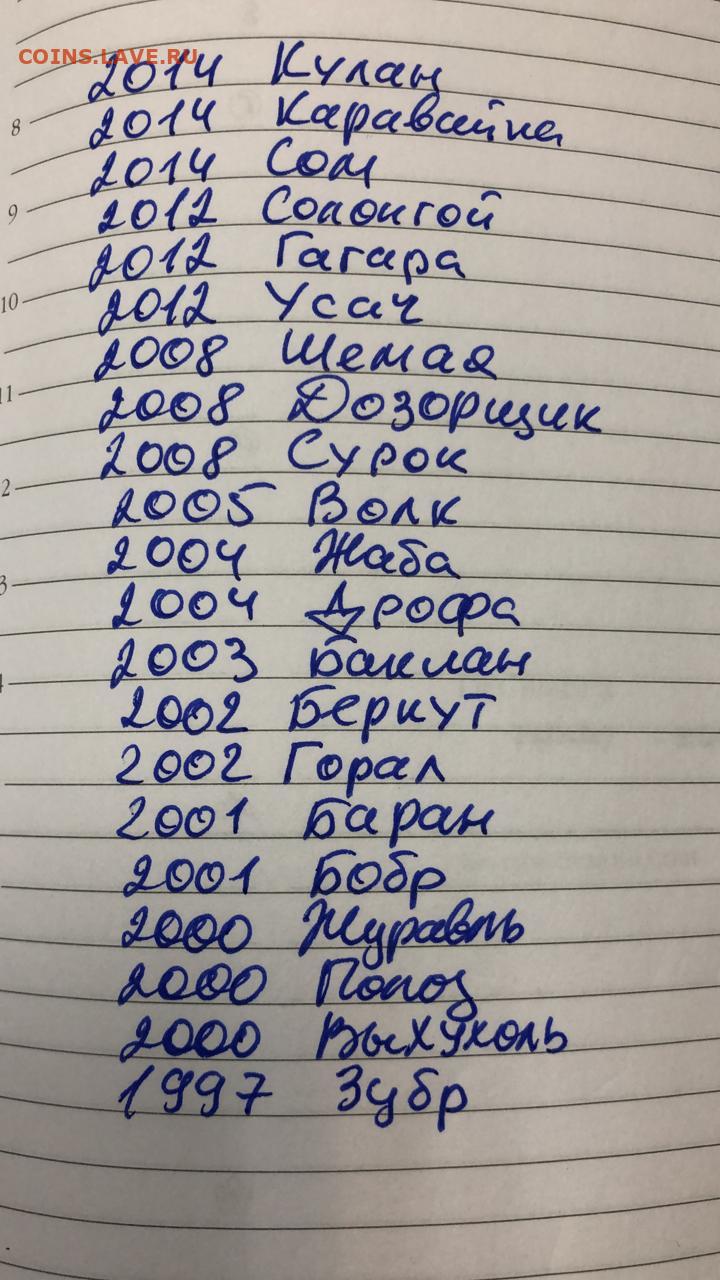 COINS.LAVE.RU
2014 Кулан
8
2014 Каравайка
2014 Сом
9
2012 Солонгой
2012 Гагара
10
2012 Усач
2008 Шемая
11
2008 Дозорщик
2008 Сурок
2
2005 Волк
2004 Жаба
3
2004 Дрофа
2003 Баклан
4
2002 Беркут
2002 Горал
2001 Баран
2001 Бобр
2000 Журавль
2000 Полоз
2000 Выхухоль
1997 Зубр